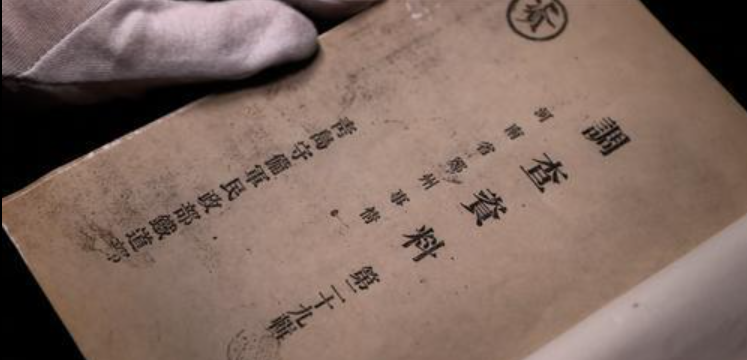 調查資料 第二十九輯
河南省鄭州事情
青島守備軍民政部鐵道部